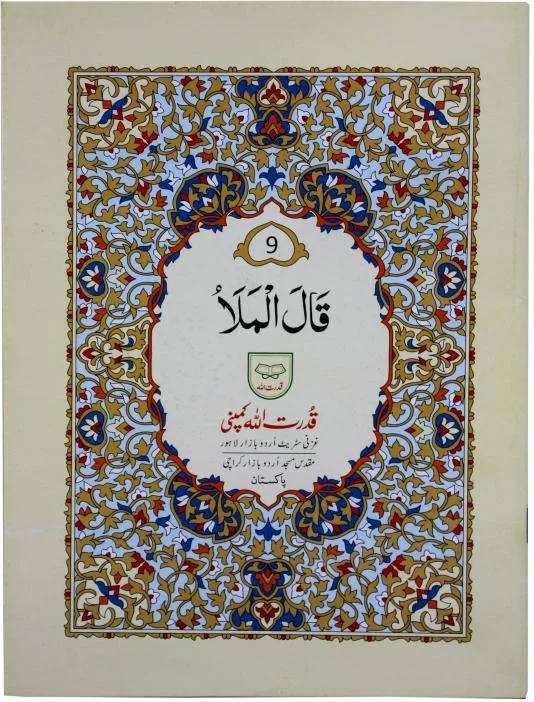 9
قَالَ الْمَلَاُ
قدرت اللہ
قُدرت اللہ کمپنی
غزنی سٹریٹ اُردو بازار لاہور
مقدس مسجد اُردو بازار کراچی
پاکستان